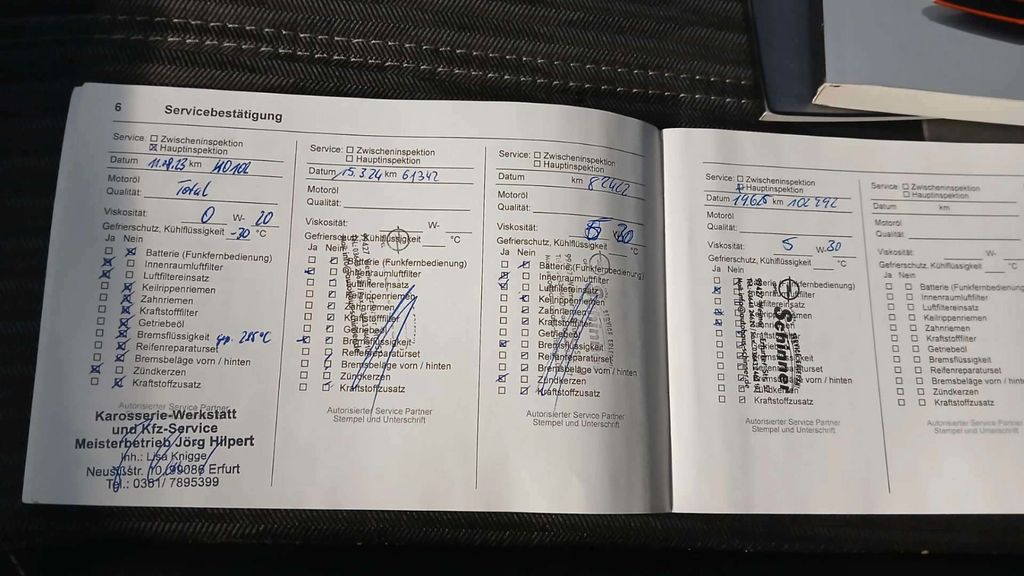 6 Servicebestätigung
Service: Zwischeninspektion
Hauptinspektion
Datum 11.08.23 km 40102
Motoröl
Qualität: Total
Viskosität: 0 W- 20
Gefrierschutz, Kühlflüssigkeit -30 °C
Ja Nein
Batterie (Funkfernbedienung)
Innenraumluftfilter
Luftfiltereinsatz
Keilrippenriemen
Zahnriemen
Kraftstofffilter
Getriebeöl
Bremsflüssigkeit
Reifenreparaturset
Bremsbeläge vorn / hinten
Zündkerzen
Kraftstoffzusatz
Autorisierter Service Partner
Karosserie-Werkstatt
und Kfz-Service
Meisterbetrieb Jörg Hilpert
Inh.: Lisa Knigge
99086 Erfurt
Tel.: 0361/ 7895399
Service: Zwischeninspektion
Hauptinspektion
Datum 15.3.24 km 61342
Motoröl
Qualität:
Viskosität: W-
Gefrierschutz, Kühlflüssigkeit °C
Ja Nein
Batterie (Funkfernbedienung)
Innenraumluftfilter
Luftfiltereinsatz
Keilrippenriemen
Zahnriemen
Kraftstofffilter
Getriebeöl
Bremsflüssigkeit
Reifenreparaturset
Bremsbeläge vorn / hinten
Zündkerzen
Kraftstoffzusatz
Autorisierter Service Partner
Stempel und Unterschrift
Service: Zwischeninspektion
Hauptinspektion
Datum km 82402
Motoröl
Qualität:
Viskosität: 5 30
Gefrierschutz, Kühlflüssigkeit °C
Ja Nein
Batterie (Funkfernbedienung)
Innenraumluftfilter
Luftfiltereinsatz
Keilrippenriemen
Zahnriemen
Kraftstofffilter
Getriebeöl
Bremsflüssigkeit
Reifenreparaturset
Bremsbeläge vorn / hinten
Zündkerzen
Kraftstoffzusatz
Autorisierter Service Partner
Stempel und Unterschrift
Service: Zwischeninspektion
Hauptinspektion
Datum km
Motoröl
Qualität:
Viskosität: 5 W- 30
Gefrierschutz, Kühlflüssigkeit °C
Ja Nein
Batterie (Funkfernbedienung)
Schinner
Bremsbeläge vorn / hinten
Kraftstoffzusatz
Autorisierter Service Partner
Stempel und Unterschrift
Service: Zwischeninspektion
Hauptinspektion
Datum km
Motoröl
Qualität:
Viskosität:
Gefrierschutz, Kühlflüssigkeit
Ja Nein
Innenraumluftfilter
Luftfiltereinsatz
Keilrippenriemen
Zahnriemen
Kraftstofffilter
Getriebeöl
Bremsflüssigkeit
Reifenreparaturset
Zündkerzen
Kraftstoffzusatz
Autorisierter Service
Stempel und Unterschrift